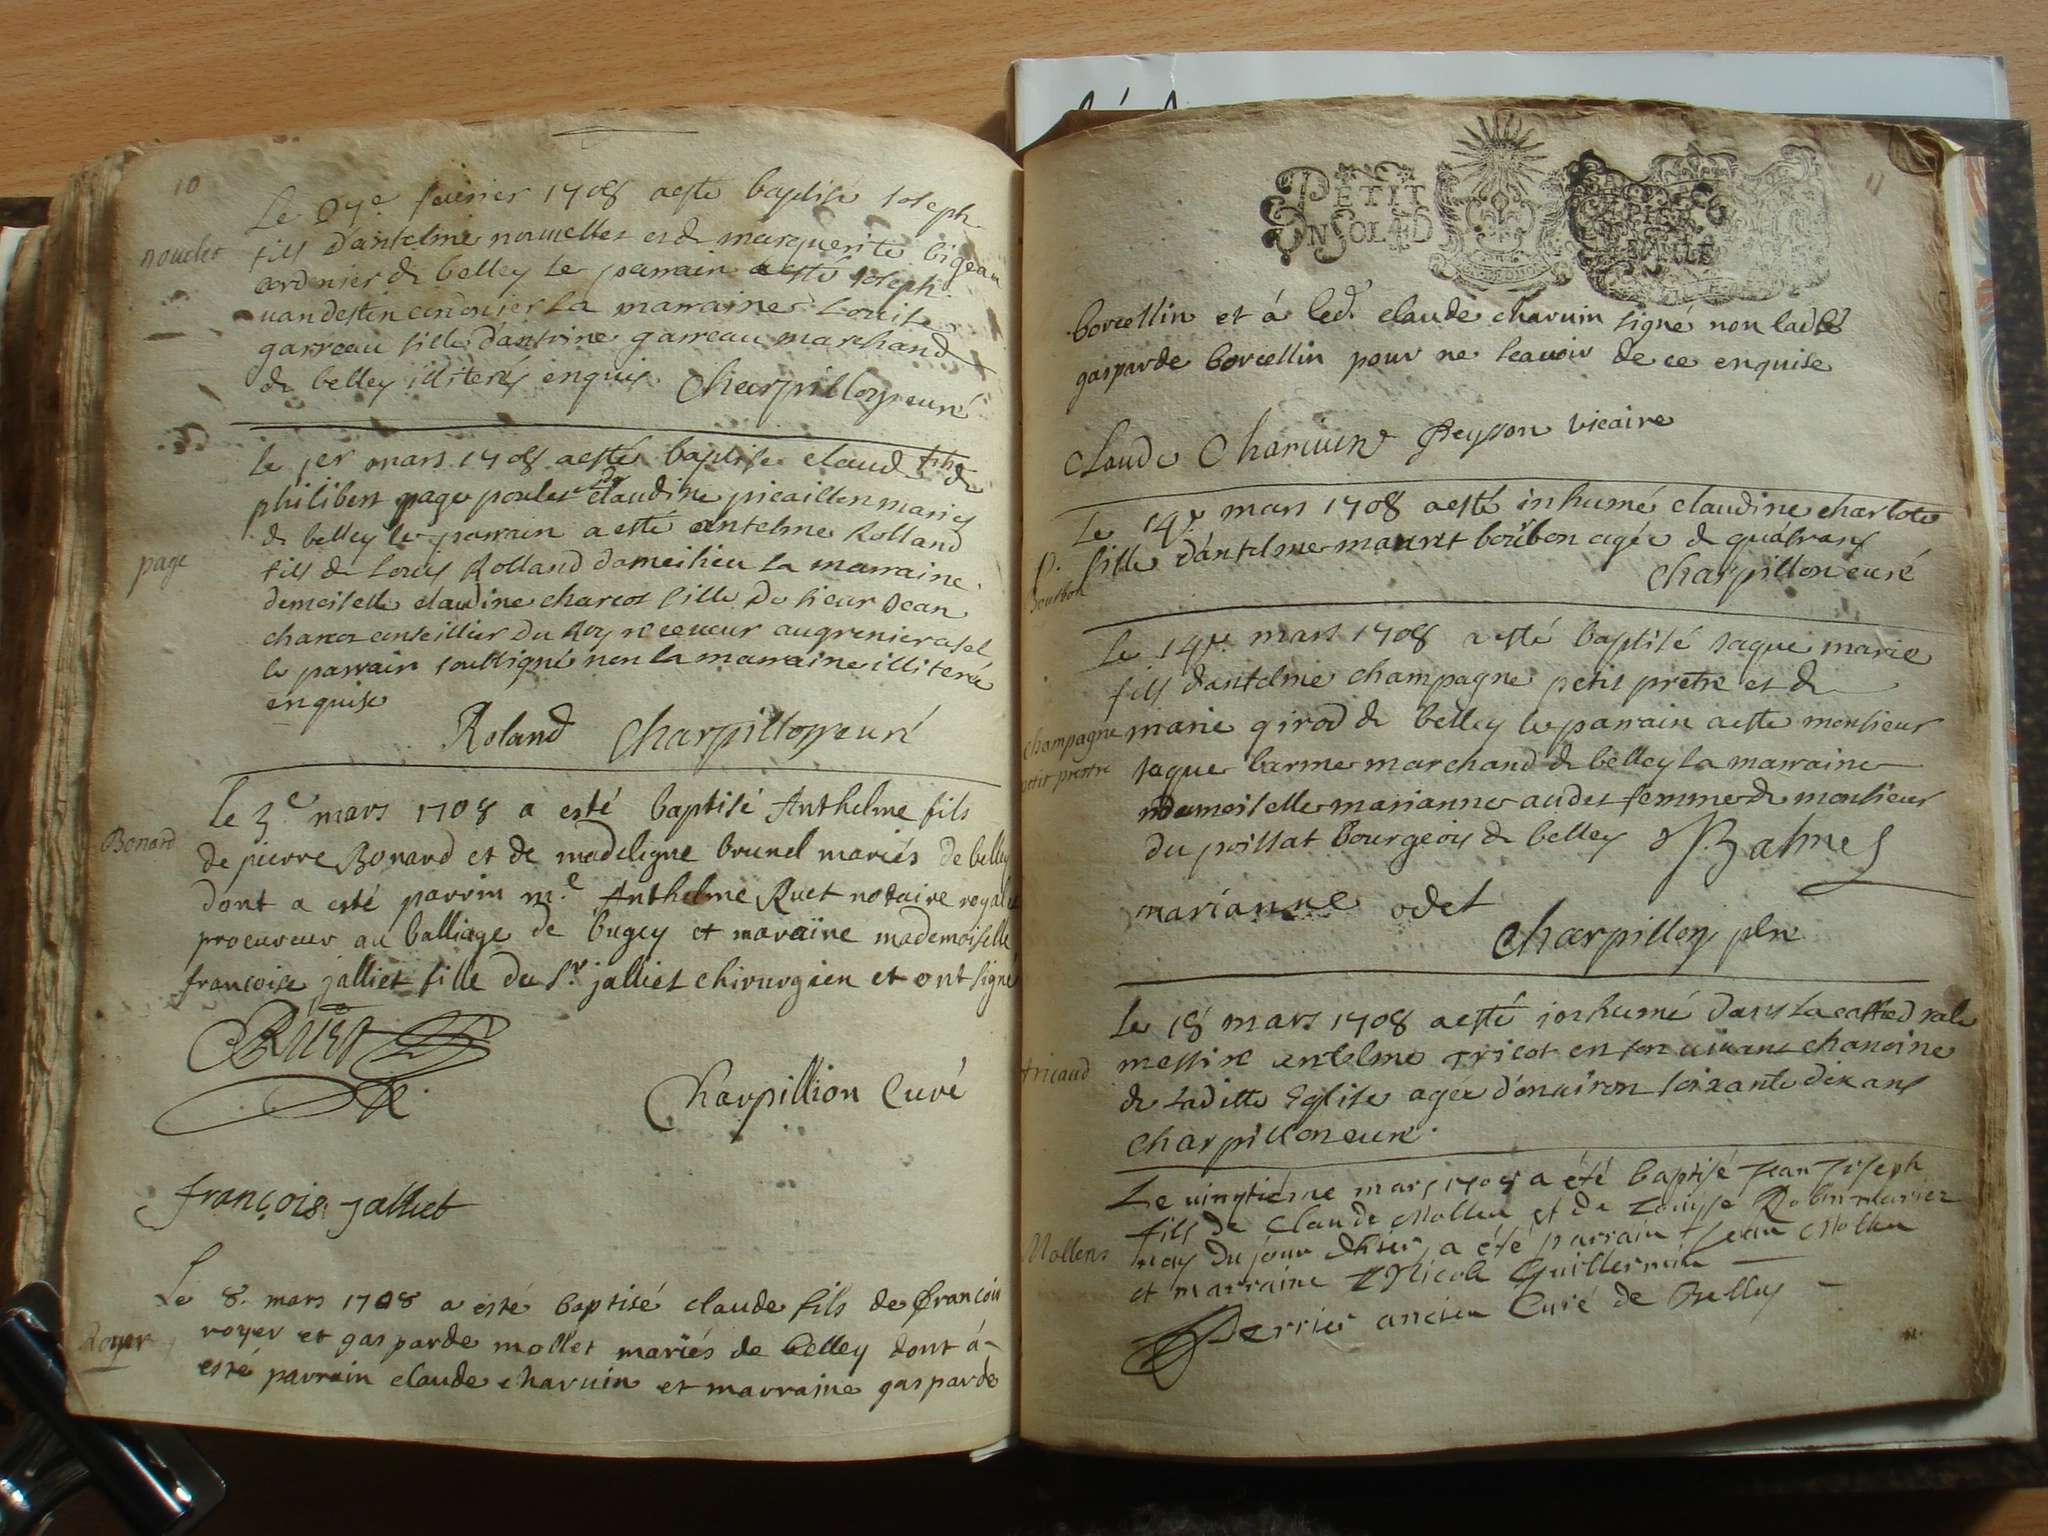 10
Le 27e feurier 1708 a esté baptisé Joseph
nouclet
fils d'antelme nouuelles et de marguerite bigeau
cordonier de belley le parrain a esté Joseph
cordonier La marraine Louise
garreau fille d'antoine garreau marchand
de belley illiterés enquis Charpillon curé
Le 1er mars 1708 a esté baptisé claud fils de
philibert page poulet et claudine picaillon mariés
de belley le parrain a esté antelme Rolland
page
fils de Louis Rolland dameilieu La marraine
demoiselle claudine charcot fille Du sieur Jean
charcot conseillier Du Roy receueur au grenier a sel
le parrain soussigné non la marraine illiterée
enquise
Roland Charpillon curé
Le 3e mars 1708 a esté baptisé Anthelme fils
Bonard
de pierre Bonard et de madeligne brunel mariés de belley
dont a esté parrin me Anthelme Ruet notaire royal
procureur au balliage de bugey et maraine mademoiselle
françoise jalliet fille du Sr jalliet chirurgien et ont signé
Ruet
Charpillion Curé
françoise jalliet
Le 8. mars 1708 a esté baptisé claude fils de françois
Royer
royer et gasparde mollet mariés de belley dont á
esté parrain claude charuin et marraine gasparde
11
PETIT
EN SOL 4 D
borcellin et á led. claude charuin signé non ladte
gasparde borcellin pour ne scauoir de ce enquise
Claude Charuin Peysson vicaire
Le 14e mars 1708 a esté inhumé claudine charlote
p. bourbon
fille d'antelme mauret bourbon agée de quatrans
Charpillon curé
Le 14e mars 1708 a esté baptisé Jaque marie
fils d'antelme champagne petit pretre et de
champagne
petit prestre
marie girod de belley le parrain a esté monsieur
Jaque barme marchand de belley la marraine
demoiselle marianne audet femme de monsieur
du poissat Bourgeois de belley J Balmes
marianne odet
Charpillon pbre
Le 18 mars 1708 a esté inhumé dans La cathedrale
tricaud
messire antelme Tricot en son uiuant chanoine
de Laditte Eglise agée d'enuiron soixante dix ans
Charpillon curé
Le uingtiéme mars 1708 a été baptisé Jean Joseph
Mollens
fils de Claude Mollen et de Louyse Robin mariez
nay du jour d'hier, a été parrain Jean Mollen
et marraine Nicole Guillermin
Perrier ancien Curé de Belley